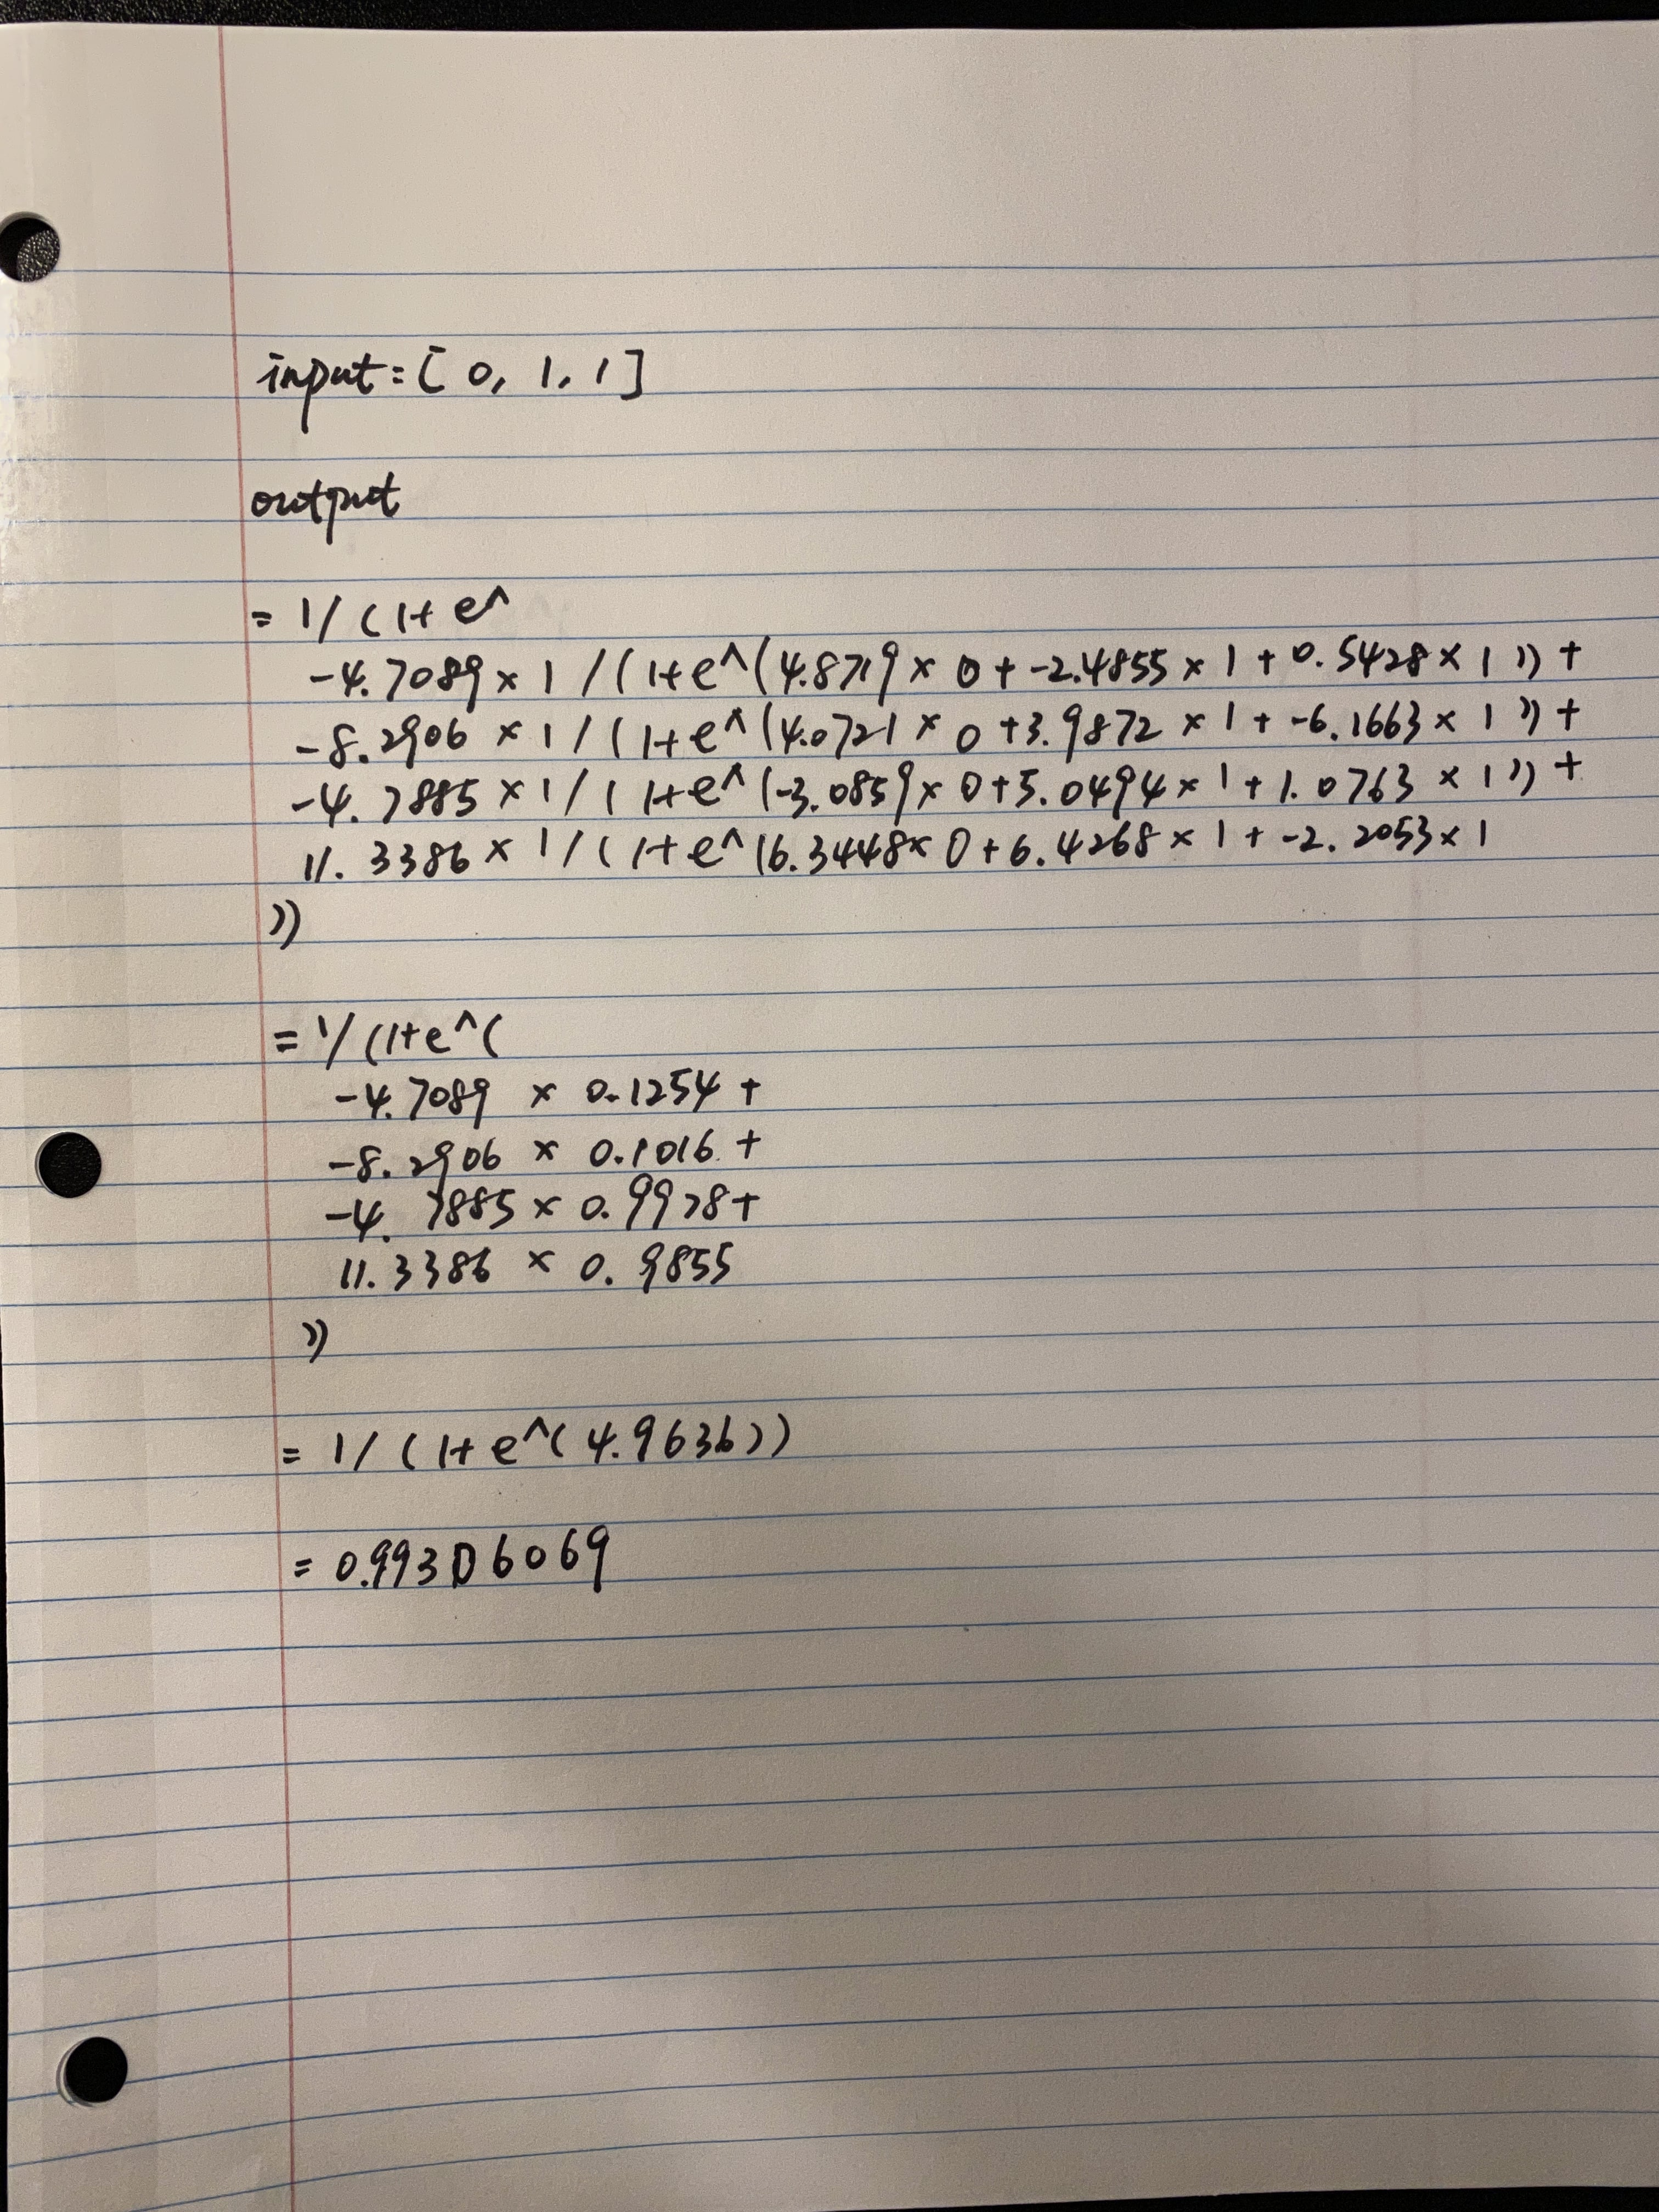 input = [ 0, 1, 1 ]
output
= 1 / ( 1+ e^
-4.7089 × 1 / ( 1+e^(4.8719 × 0 + -2.4855 × 1 + 0.5428 × 1 )) +
-8.2906 × 1 / ( 1+e^(4.0721 × 0 +3.9872 × 1 + -6.1663 × 1 )) +
-4.7885 × 1 / ( 1+e^(-3.0859 × 0+5.0494 × 1 + 1.0763 × 1 )) +
11.3386 × 1 / ( 1+e^(6.3448× 0+6.4268 × 1 + -2.2053 × 1
))
= 1/ (1+e^(
-4.7089 × 0.1254 +
-8.2906 × 0.1016 +
-4.7885 × 0.9978 +
11.3386 × 0.9855
))
= 1 / ( 1+ e^( 4.9636))
= 0.99306069